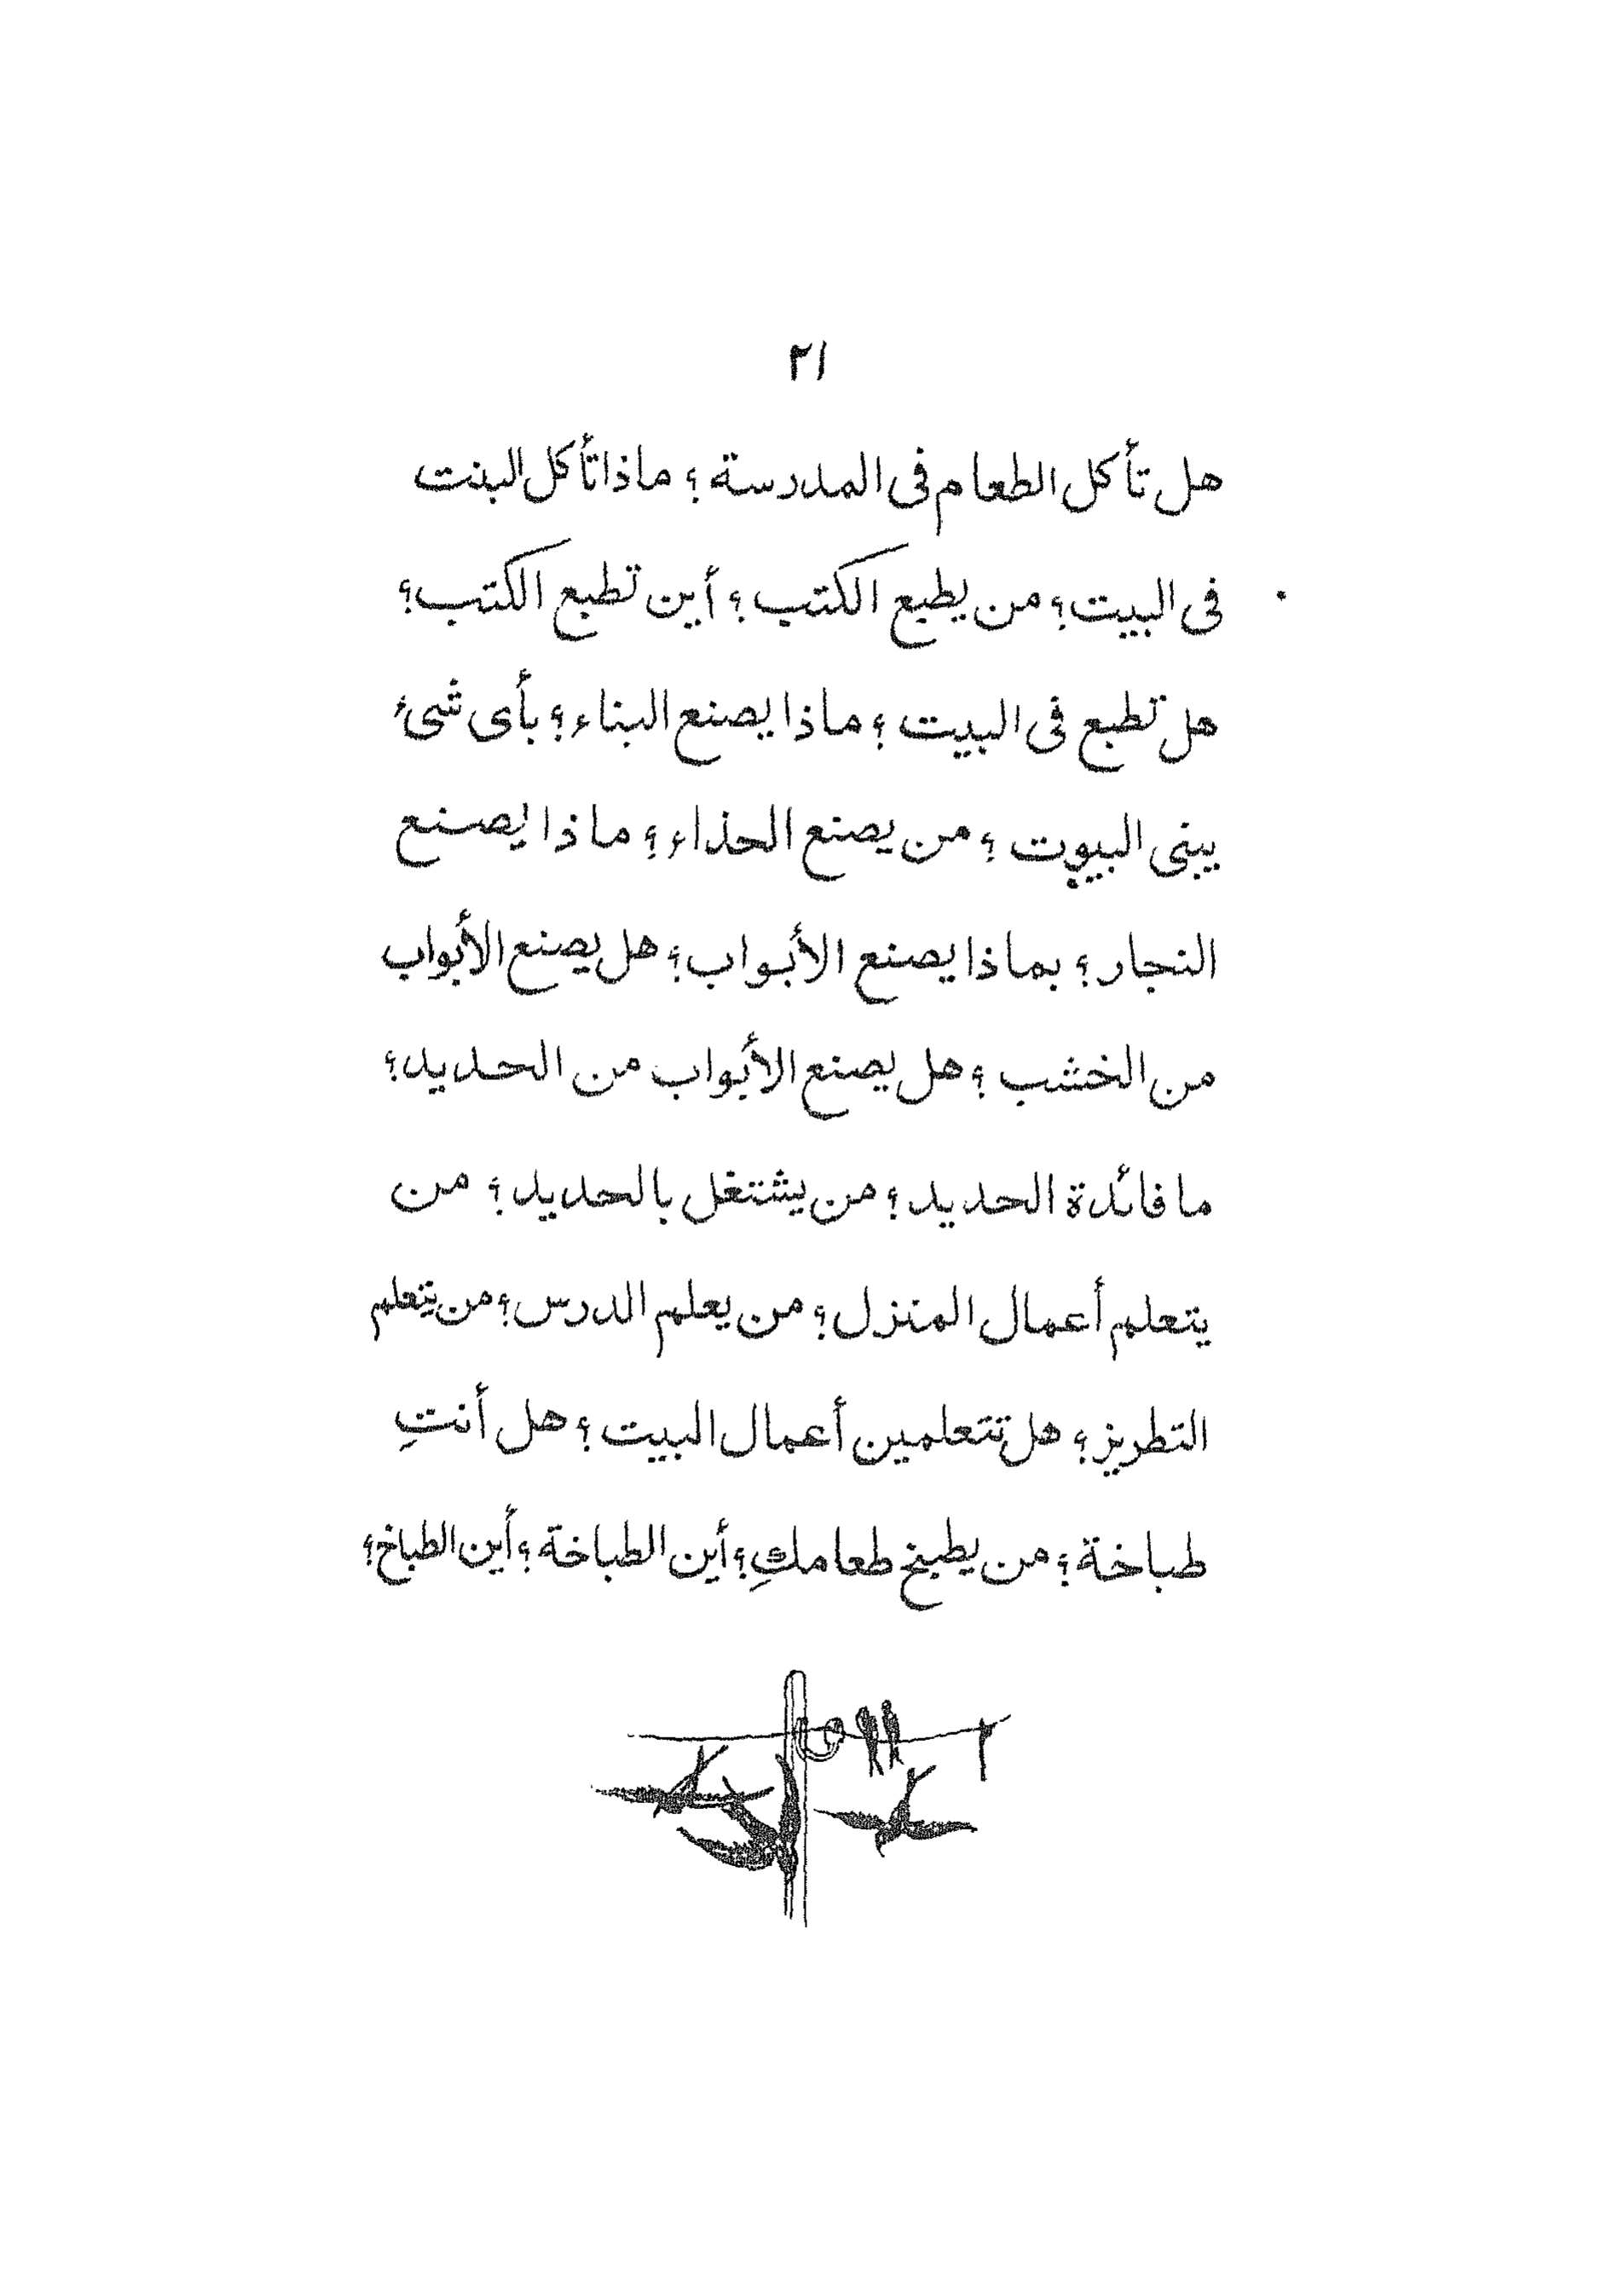 ٢١
هل تأكل الطعام فى المدرسة ؟ ماذا تأكل البنت
فى البيت؟ من يطبع الكتب؟ أين تطبع الكتب؟
هل تطبع فى البيت ؟ ماذا يصنع البناء؟ بأى شىء
يبنى البيوت ؟ من يصنع الحذاء؟ ماذا يصنع
النجار؟ بماذا يصنع الأبواب؟ هل يصنع الأبواب
من الخشب ؟ هل يصنع الأبواب من الحديد؟
ما فائدة الحديد؟ من يشتغل بالحديد؟ من
يتعلم أعمال المنزل؟ من يعلم الدرس؟ من يتعلم
التطريز؟ هل تتعلمين أعمال البيت؟ هل أنتِ
طباخة؟ من يطبخ طعامكِ؟ أين الطباخة؟ أين الطباخ؟